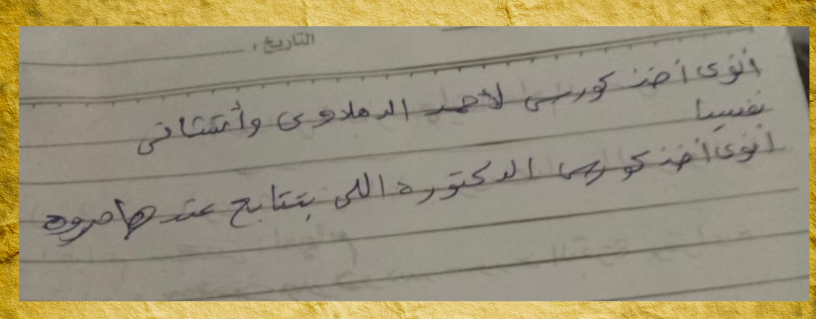 التاريخ :
أنوى أخذ كورس لأحمد الدملاوى وأتشافى
نفسيا
أنوى أخذ كورس الدكتوره اللى بتتابع عندها مروه